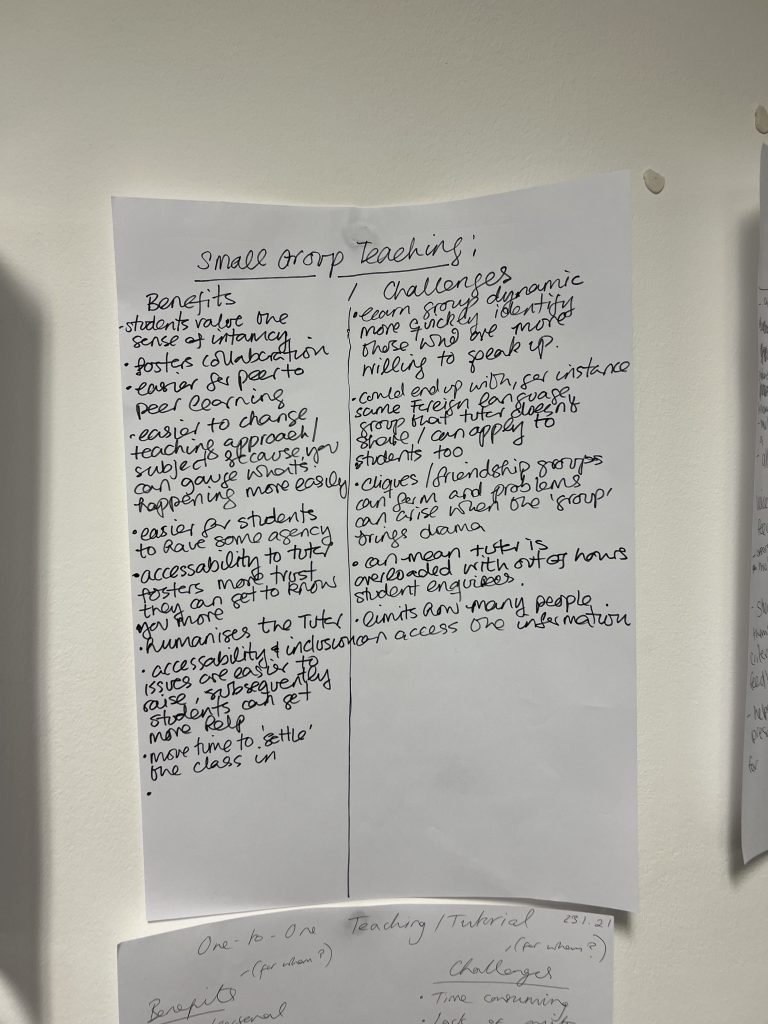 Small Group Teaching:
Benefits
-students value the
sense of intamcy
• fosters collaboration
• easier for peer to
peer learning
• easier to change
teaching approach/
subjects because you
can gauge whats
happening more easily
• easier for students
to have some agency
• accessability to tutor
fosters more trust
they can get to know
you more
• humanises the Tutor
• accessability & inclusion
issues are easier to
raise, subsequently
students can get
more help
• more time to 'settle'
the class in
•
/ Challenges
• learn group dynamic
more quickly identify
those who are more
willing to speak up.
• could end up with, for instance
same Foreign language
group that tutor doesn't
share / can apply to
students too
• cliques / friendship groups
can form and problems
can arise when the 'group'
brings drama
• can mean tutor is
overloaded with out of hours
student enquiries.
• limits how many people
can access the information
One-to-One Teaching/Tutorial 23.1.21
-(for whom?)
-(for whom?)
Benefits
Challenges
• Time consuming
• Lack of